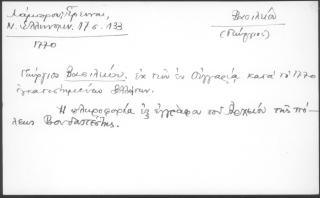 Λάμπρου, Έρευναι,
Ν. Ελληνομν. 17 σ. 133
Βασιλείου
(Γεώργιος)
1770
Γεώργιος Βασιλείου, εκ των εν Ουγγαρία κατά το 1770
εγκατεστημένων Ελλήνων.
Η πληροφορία εξ εγγράφου του Αρχείου της πό-
λεως Βουδαπέστης.